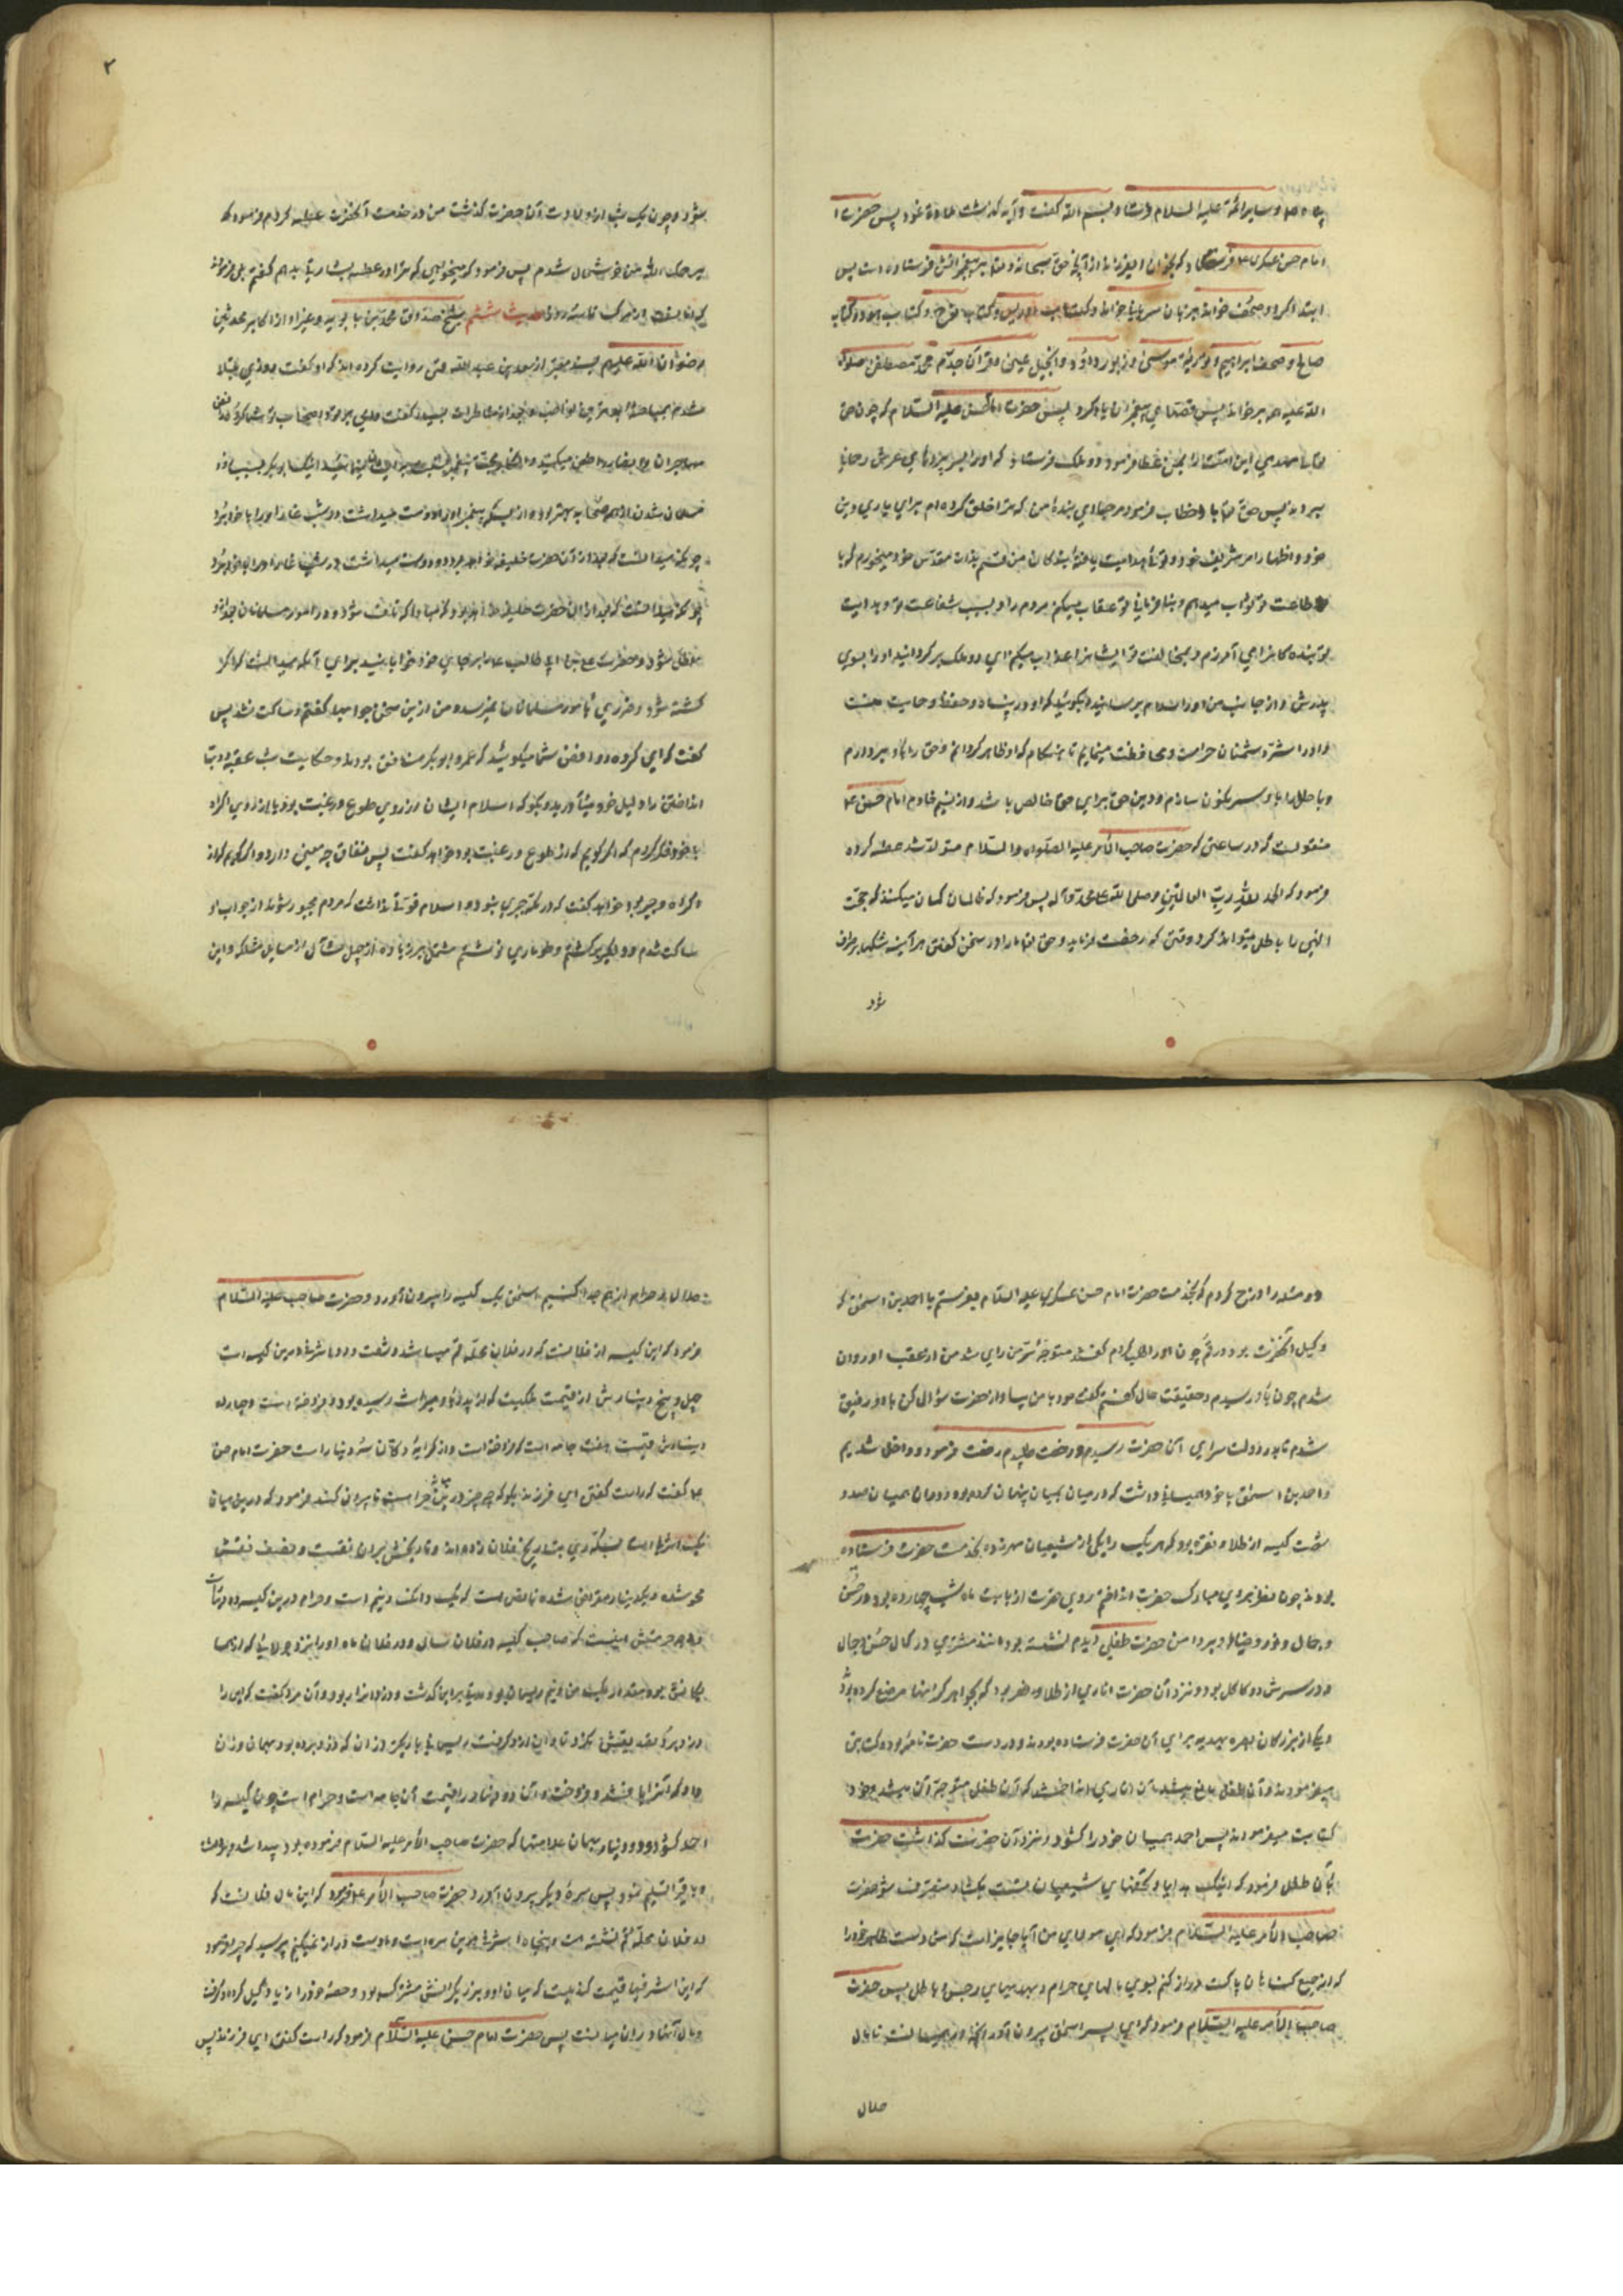 وسایر ائمه علیه السلام فرستاد و بسم الله گفت و آیه گذشته تلاوة نمود پس حضرت
امام حسن عسکری فرمود که بخوان ای فرزند از آنچه حق سبحانه و تعالی بر پیغمبرانش فرستاده است پس
ابتدا کرد و صحف خواند بزبان سریانی خواند و کتاب ادریس و کتاب نوح و کتاب هود و کتاب
صالح و صحف ابراهیم و توریة موسی و زبور داود و انجیل عیسی و قرآن جدم محمد مصطفی صلوات
الله علیه همه برخواند پس قصهای پیغمبران یاد کرد پس حضرت امام حسن علیه السلام که چون حق
تعالی مهدی این امت را بمن عطا فرمود دو ملک فرستاد که او را بسراپردهای عرش رحمانی
بردند پس حق تعالی با او خطاب فرمود مرحبا ای بنده من که ترا خلق کرده ام برای یاری دین
خود و اظهار امر شریف خود و توئی هدایت یافته بندگان من قسم بذات مقدس خود میخورم که با
طاعت تو ثواب میدهم و بنافرمانی تو عقاب میکنم مردم را و بسبب شفاعت تو و هدایت
تو بنده کانرا می آمرزم و بمخالفت تو ایشانرا عذاب میکنم ای دو ملک برگردانید او را بسوی
پدرش و از جانب من او را سلام برسانید و بگوئید که او در پناه و حفظ و حمایت منست
و او را از شر دشمنان حراست و محافظت مینمایم تا هنگام که او ظاهر گردانم و حق را باو برپا دارم
و باطل را باو سرنگون سازم و دین حق برای من خالص باشد و از نسیم خادم امام حسن ع
منقولست که در ساعتی که حضرت صاحب الامر علیه الصلوات والسلام متولد شد عطسه کرد و
فرمود که الحمد لله رب العالمین و صلی الله علی محمد و آله پس فرمود که ظالمان گمان میکنند که حجت
الهی را باطل میتواند کرد وقتی که رخصت فرماید و حق تعالی ما را در سخن گفتن هر آینه شکها برطرف
شود
شود و چون یک شب از ولادت آن حضرت گذشت من در خدمت آنحضرت عطسه کردم فرمود که
یرحمک الله من خوشحال شدم پس فرمود که میخواهی که ترا در عطسه بشارتی بدهم گفتم بلی فرمود
که امانست از مرگ تا سه روز حدیث ششم شیخ صدوق محمد بن بابویه و غیر او از اکابر محدثین
رضوان الله علیهم بسند معتبر از سعد بن عبد الله قمی روایت کرده اند که او گفت روزی مبتلا
شدم بمباحثه
مهاجران و انصار را طعن میکنید
مسلمان شدن از همه صحابه بهتر بود و از بس که پیغمبر او را دوست میداشت در شب غار او را با خود برد
چونکه میدانست که بعد از آن حضرت خلیفه خواهد بود و دوست میداشت در شب غار او را با خود برد
چونکه میدانست که بعد از آن حضرت خلیفه خواهد بود که مبادا که تلف شود و در امور مسلمانان بعد از او
خلل شود و حضرت علی بن ابی طالب را بر جای خود خوابانید برای آنکه میدانست که اگر او
کشته شود ضرری بامور مسلمانان نمیرسد و من ازین سخن جوابها گفتم و ساکت نشد پس
گفت که ای گروه روافض شما میگوئید که عمر و ابوبکر منافق بودند و حکایت شب عقبه و دبها
انداختن را دلیل خود میآورید بگو که اسلام ایشان از روی طوع و رغبت بود یا از روی اکراه
با خود فکر کردم که اگر گویم که از طوع و رغبت بود خواهد گفت پس نفاق چه معنی دارد و اگر گویم که از
اکراه و جبر بود خواهد گفت که در مکه جبری نبود و اسلام قوتی نداشت که مردم مجبور شوند از جواب او
ساکت شدم و دلگیر برگشتم و طوماری نوشتم مشتمل بر زیاده از چهل مسئله از مسایل مشکله و این
دو مسئله را درج کردم که بخدمت حضرت امام حسن عسکری علیه السلام بفرستم با احمد بن اسحق که
وکیل آنحضرت بود در قم چون او را طلب کردم گفتند متوجه سر من رای شد من از عقب او روان
شدم چون باو رسیدم و حقیقت حال گفتم گفت خود با من بیا و از حضرت سؤال کن با او رفیق
شدم تا بدر دولت سرای آن حضرت رسیدیم و رخصت طلبیدم رخصت فرمود و داخل شدیم
و احمد بن اسحق با خود همیانی داشت که در میان همیان پنهان کرده بود و در آن همیان صد و
شصت کیسه از طلا و نقره بود که هر یک را یکی از شیعیان مهر زده بخدمت حضرت فرستاده
بودند چون نظر بروی مبارک حضرت انداختم روی حضرت از بابت ماه شب چهارده بود در حسن
و جمال و نور و ضیا و بر دامن حضرت طفلی دیدم نشسته بود مانند مشتری در کمال حسن و جمال
و در سرش دو کاکل بود و نزد آن حضرت اناری از طلا حاضر بود که بجواهر گرانبها مرصع کرده بود
و یکی از بزرگان بصره بهدیه برای آن حضرت فرستاده بودند و در دست حضرت نامه بود و کتابتی
میفرمودند و آن طفل مانع میشد آن انار را می انداختند که آن طفل متوجه آن میشد و خود
کتابت میفرمودند پس احمد همیان خود را گشود و نزد آن حضرت گذاشت حضرت
بآن طفل فرمود که اینک هدایا و تحفهای شیعیان تست بگشا و متصرف شو حضرت
صاحب الامر علیه السلام فرمود که ای مولای من آیا جایز است که من دست طاهر خود را
که از جمیع گناهان پاکست دراز کنم بسوی مالهای حرام و هدیهای رجس و باطل پس حضرت
صاحب الامر علیه السلام فرمود که ای پسر اسحق بیرون آور آنچه در همیانست تا مال
حلال
حلال را از حرام از هم جدا کنیم اسحق یک کیسه را بیرون آورد و حضرت صاحب علیه السلام
فرمود که این کیسه از فلانست که در فلان محله قم میباشد و شصت و دو اشرفی درین کیسه است
چهل و پنج دینارش از قیمت ملکیست که از پدر باو میراث رسیده بود و فروخته است و چهارده
دینارش قیمت هفت جامه است که فروخته است و از کرایه دکان سه دینار است حضرت امام حسن
ع گفت که راست گفتی ای فرزند بگو که چه چیز در میانش حرامست تا بیرون کند فرمود که درین میان
یک اشرفی است بسکه ری بتاریخ فلان زده اند و تاریخش بر آن نقشست و نصف نقشش
محو شده و یک دینار مقراض شده ناقص است که یک دانگ و نیم است و حرام درین کیسه دو دیناست
و وجه حرمتش اینست که صاحب کیسه در فلان سال و در فلان ماه او را نزد جولائی که از همسا
یگانش بود مقدار یک من و نیم ریسمان بود و مدتی برین گذشت و دزد آنرا ربود و آن مرد گفت که این را
دزد برد تصدیقش نکرد و تاوان ازو گرفت ریسمانی باریکتر از آن که دزد برده بود بهمان وزن
داد که آنرا بافتند و فروخت و آن دو دینار از قیمت آن جامه است و حرام است چون کیسه را
احمد گشود دو دینار بهمان علامتها که حضرت صاحب الامر علیه السلام فرموده بود پیدا شد برداشت
و باقی را تسلیم نمود پس صره دیگر بیرون آورد حضرت صاحب الامر ع فرمود که این مال فلانست که
در فلان محله قم نشسته است و پنجاه اشرفی درین صره است و ما دست دراز نمیکنم پرسید که چرا فرمود
که این اشرفیها قیمت گندمیست که میان او و برزیگرانش مشترک بود و حصه خود را زیاد کیل کرد و گرفت
و مال آنها در آن میانست پس حضرت امام حسن علیه السلام فرمود که راست گفتی ای فرزند پس